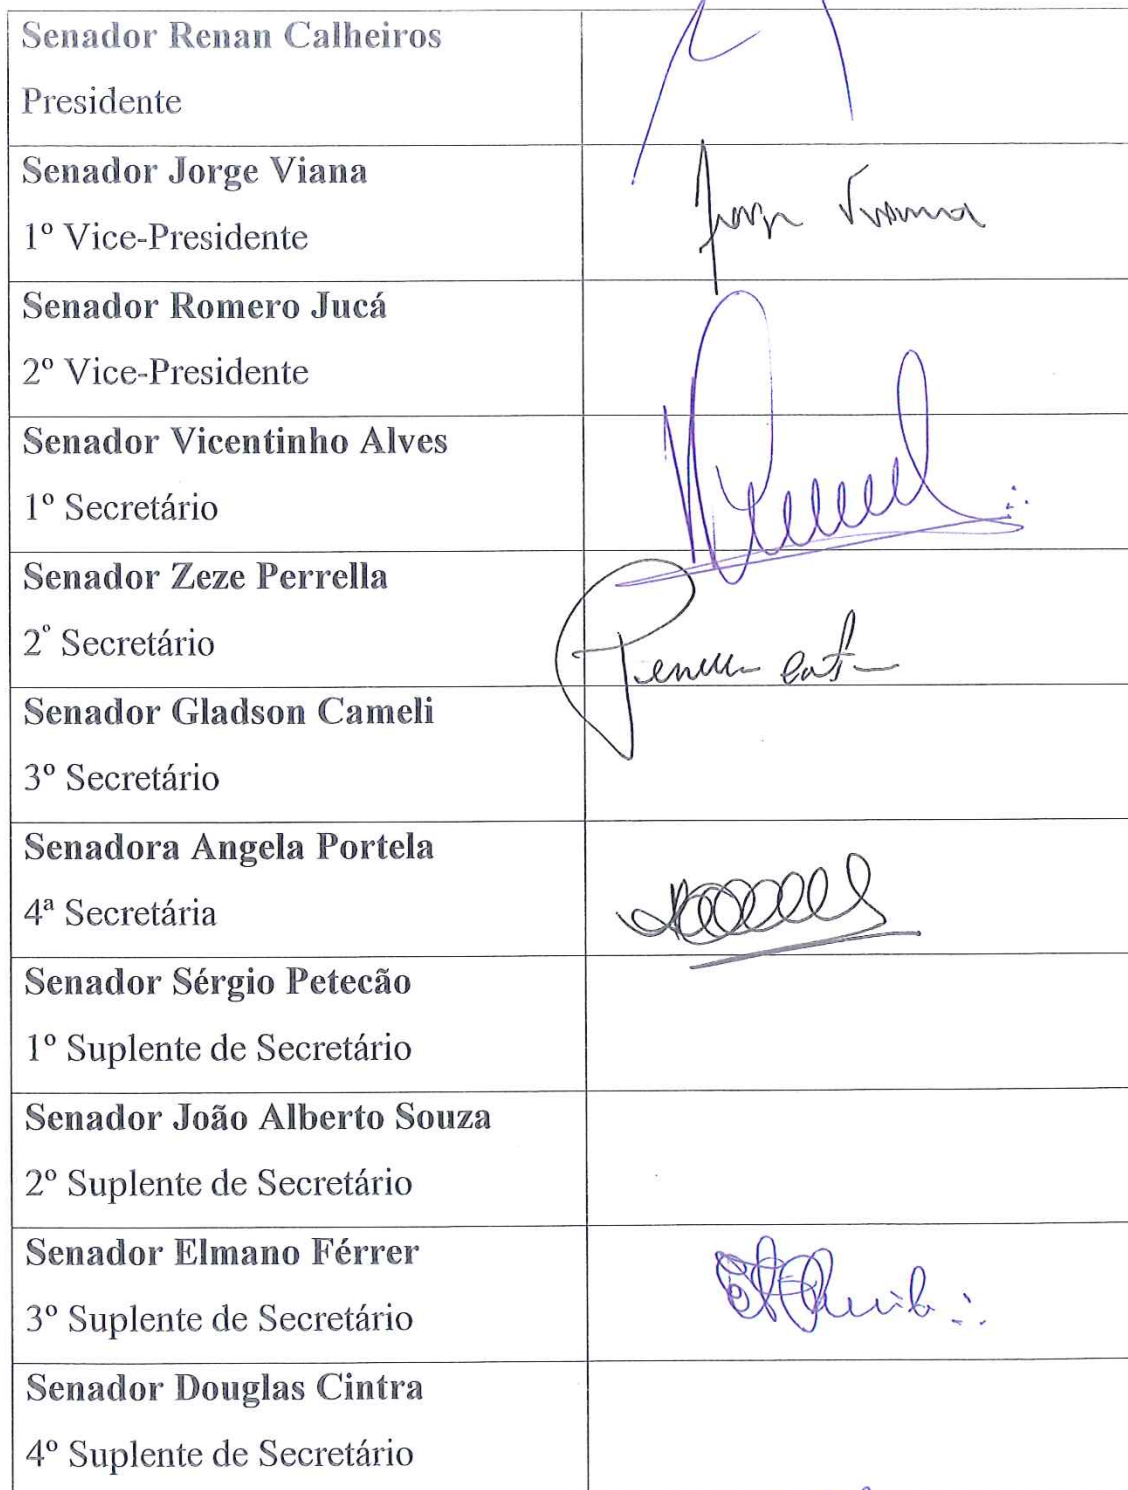 Senador Renan Calheiros
Presidente
Senador Jorge Viana
1º Vice-Presidente
Jorge Viana
Senador Romero Jucá
2º Vice-Presidente
Senador Vicentinho Alves
1º Secretário
Senador Zeze Perrella
2º Secretário
Senador Gladson Cameli
3º Secretário
Senadora Angela Portela
4ª Secretária
Senador Sérgio Petecão
1º Suplente de Secretário
Senador João Alberto Souza
2º Suplente de Secretário
Senador Elmano Férrer
3º Suplente de Secretário
Senador Douglas Cintra
4º Suplente de Secretário